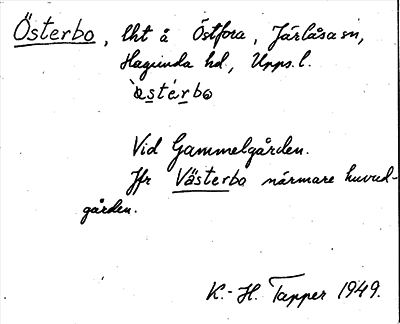 Österbo, lht å Östfora, Järlåsa sn,
Hagunda hd, Upps. l.
`ǫsté̱rbǫ
Vid Gammelgården.
Jfr Västerbo närmare huvud-
gården.
K.-H. Tapper 1949.